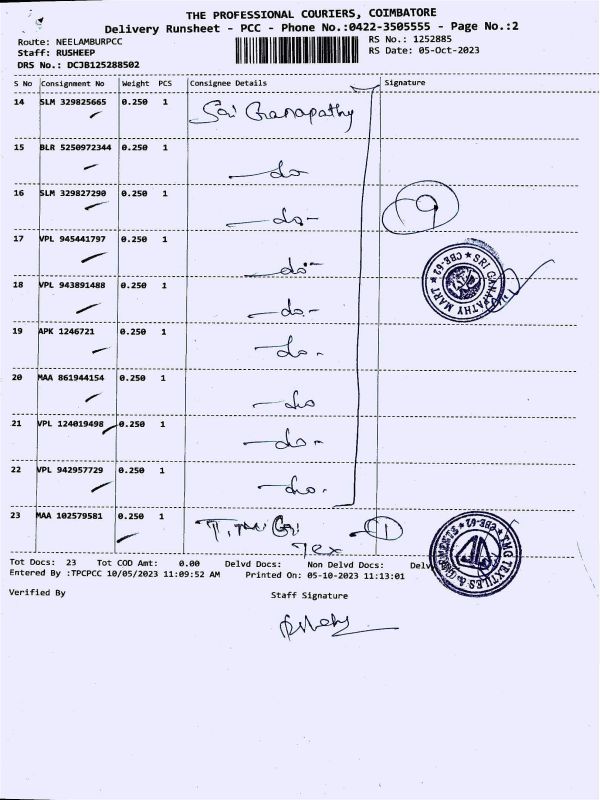 THE PROFESSIONAL COURIERS, COIMBATORE
Delivery Runsheet - PCC - Phone No.:0422-3505555 - Page No.:2
Route: NEELAMBURPCC
RS No.: 1252885
Staff: RUSHEEP
RS Date: 05-Oct-2023
DRS No.: DCJB125288502
S No Consignment No Weight PCS Consignee Details Signature
14 SLM 329825665 0.250 1 Sri Ganapathy
15 BLR 5250972344 0.250 1 -do-
16 SLM 329827290 0.250 1 -do-
9
17 VPL 945441797 0.250 1 -do-
SRI GANAPATHY MART CBE-62
18 VPL 943891488 0.250 1 -do-
19 APK 1246721 0.250 1 -do-
20 MAA 861944154 0.250 1 -do
21 VPL 124019498 0.250 1 -do-
22 VPL 942957729 0.250 1 -do.
23 MAA 102579581 0.250 1 Tex 1
TEXTILES & GARMENTS CBE-62
Tot Docs: 23 Tot COD Amt: 0.00 Delvd Docs: Non Delvd Docs: Delv
Entered By :TPCPCC 10/05/2023 11:09:52 AM Printed On: 05-10-2023 11:13:01
Verified By Staff Signature